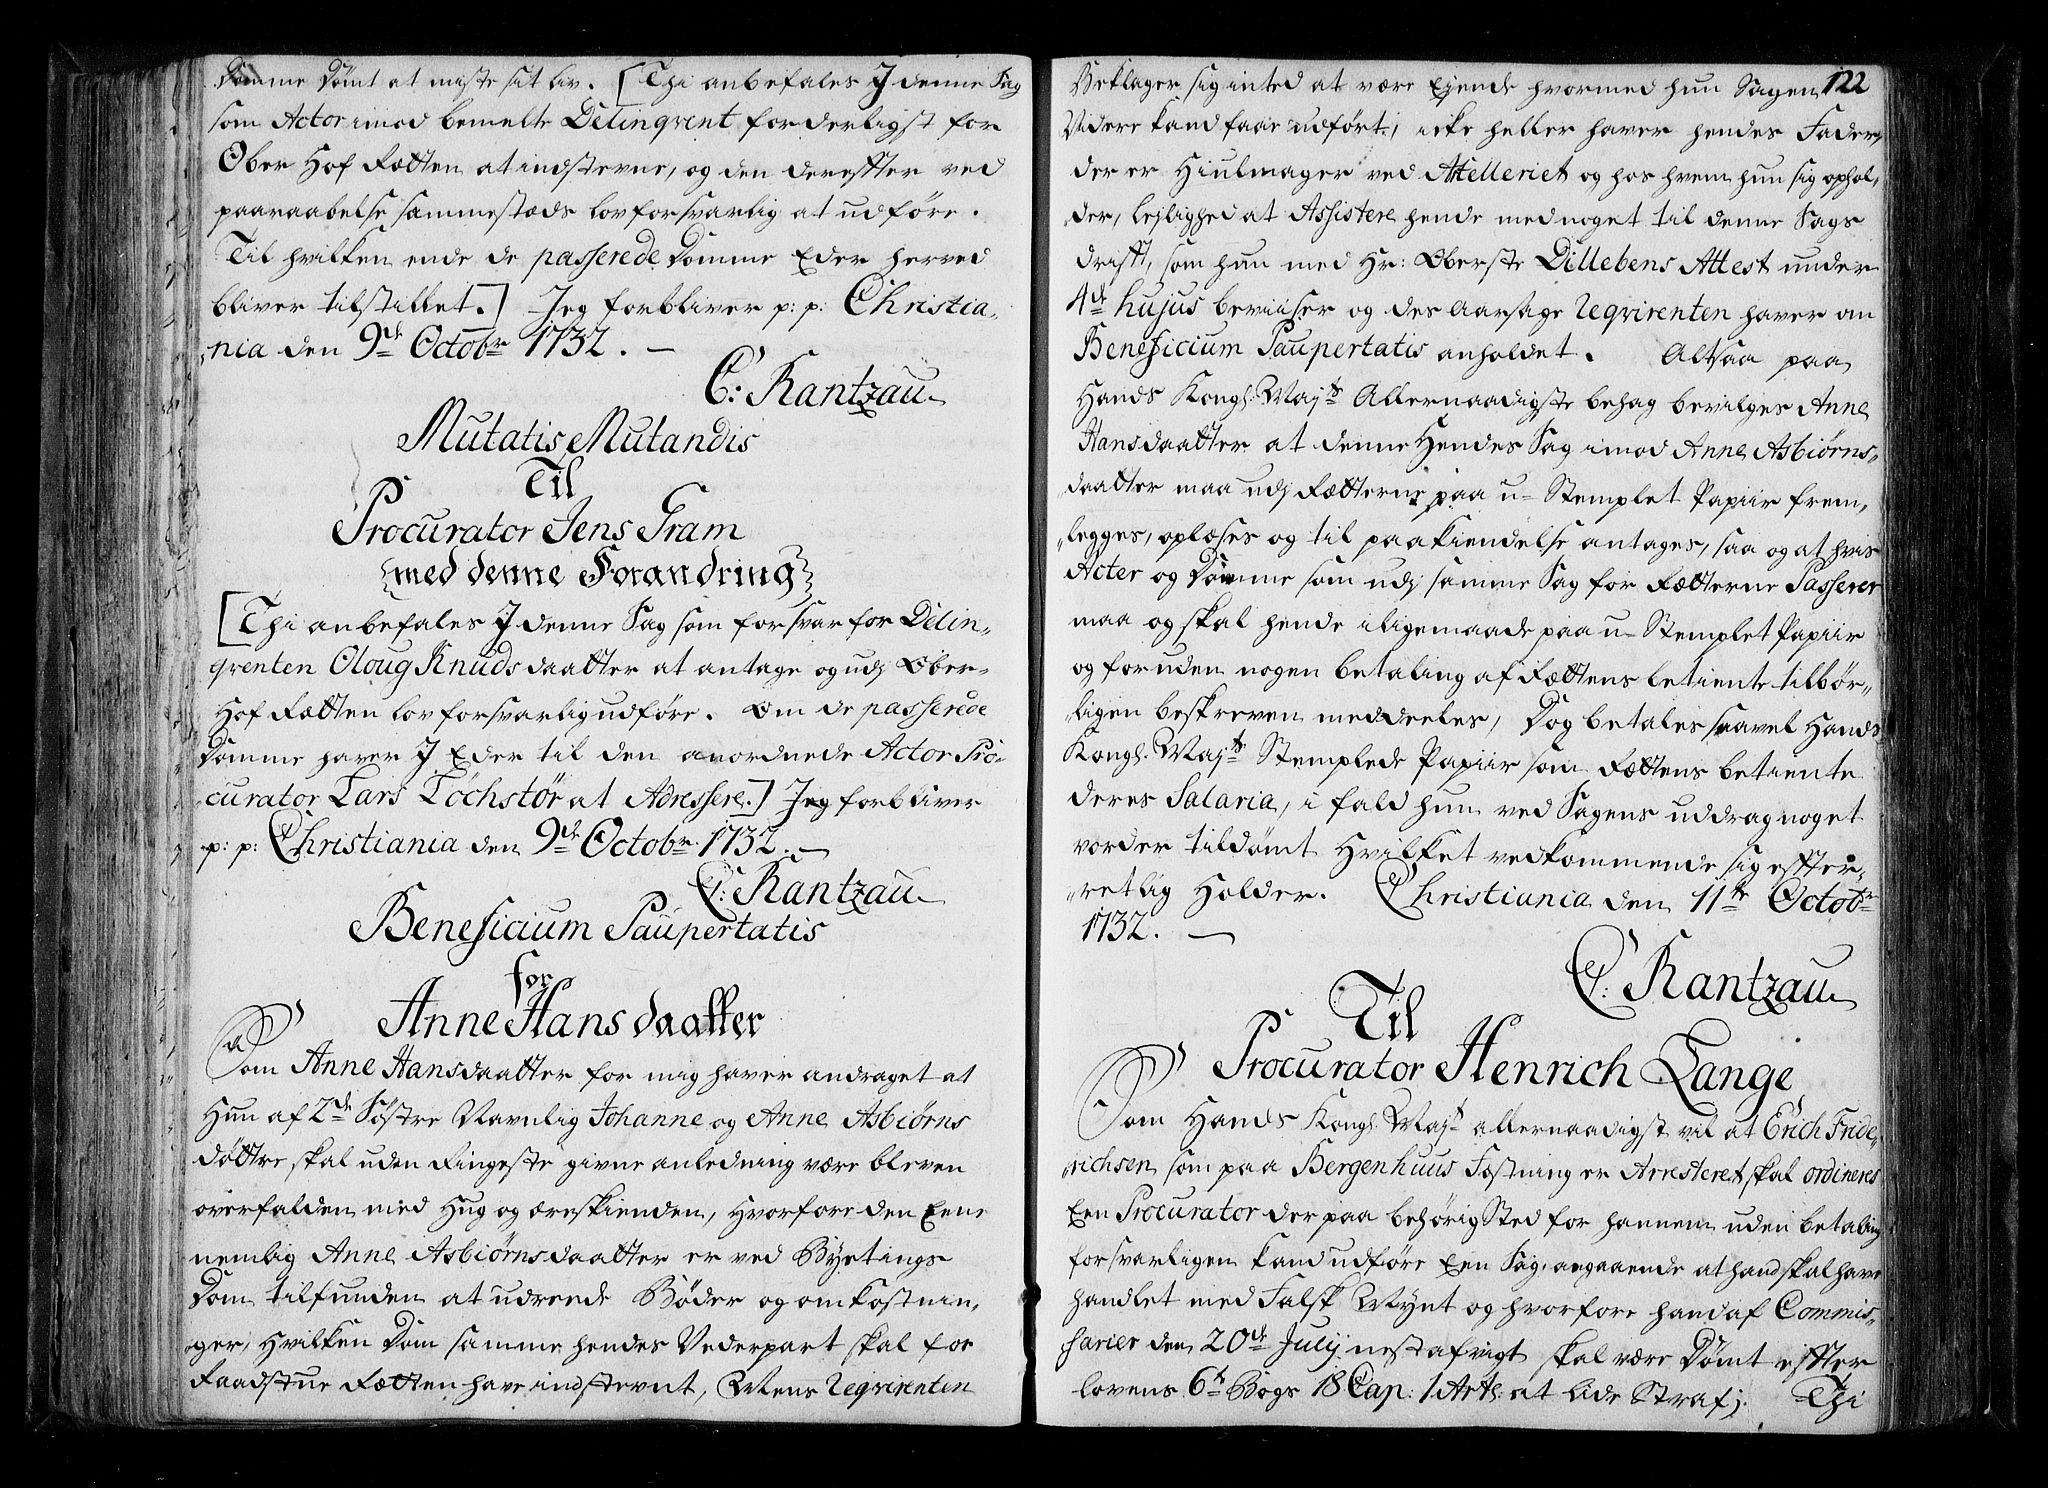 Domme Dömt at miste sit liv. [Thi anbefales I denne Sag
som Actor imod bemelte Delinqvent forderligst for
Ober Hof Rætten at indstevne, og den dereffter ved
paaraabelse sammestæds lovforsvarlig at udföre.
Til hvilken ende de passerede Domme Eder herved
bliver tilstillet.] Jeg forbliver p: p: Christia,
,nia den 9de Octobr 1732. —
C: Rantzau
Mutatis Mutandis
Til
Procurator Jens Gram
med denne Forandring
[Thi anbefales I denne Sag som forsvar for Delin,,
qventen Oloug Knuds daatter at antage og udj Ober-
Hof Rætten lovforsvarlig udföre. Om de passerede
Domme haver I Eder til den anordnede Actor Pro-
curator Lars Löchstör at Adressere.] Jeg forbliver
p: p: Christiania den 9de Octobr 1732. —
C: Rantzau
Beneficium Paupertatis
for
Anne Hans daatter
Som Anne Hansdaatter for mig haver andraget at
Hun af 2de Söstre Navnlig Johanne og Anne Asbiörns
döttre skal uden Ringeste givne anledning være bleven
overfalden med Hug og æreskienden, hvorfore den Eene
nemlig Anne Asbiörnsdaatter er ved Byetings
Dom tilfunden at udreede Böder og omkostnin,
ger, Hvilken Dom samme hendes Vederpart skal for
Raadstue Rætten have indstevnt, Mens Reqvirenten
Beklager sig inted at være Ejende hvormed hun Sagen 122
Videre kand faae udfört, icke heller haver hendes Fader,
der er Hiulmager ved Attelleriet og hos hvem hun sig ophol,
der, lejlighed at Assistere hende med noget til denne Sags
drifft, som hun med Hr: Oberste Dillebens Attest under
4de hujus beviiser og des Aarsage Reqvirenten haver om
Beneficium Paupertatis anholdet. Altsaa paa
Hands Kongl. Mayts Allernaadigste behag bevilges Anne
Hansdaatter at denne Hendes Sag imod Anne Asbiörns,,
daatter maa udj Rætterne paa u- Stemplet Papiir frem,
,,legges, oplæses og til paakiendelse antages, saa og at hvis
Acter og Domme som udj samme Sag for Rætterne Passerer
maa og skal hende iligemaade paa u- Stemplet Papiir
og foruden nogen betaling af Rættens betiente tilbör,,
,ligen beskreven meddeeles, Dog betales saavel Hands
Kongl. Mayts Stemplede Papiir som Rættens betiente
deres Salaria, i fald hun ved Sagens uddrag noget
vorder tildömt Hvilket vedkommende sig effter,,
,,retlig Holder. Christiania den 11te Octobr
1732. —
C: Rantzau
Til
Procurator Henrich Lange
Som Hands Kongl. Mayt allernaadigst vil at Erich Fride,,
,richsen som paa Bergenhuus Fæstning er Arresteret skal ordineres
Een Procurator der paa behörig Sted for hannem uden betaling
forsvarligen kand udföre Een Sag, angaaende at hand skal have
handlet med Falsk Mynt og hvorfore hand af Commis,,
sarier den 20de Julij nestafvigt skal være Dömt effter
lovens 6te Bogs 18 Cap: 1 Artl. at lide Straf; Thi